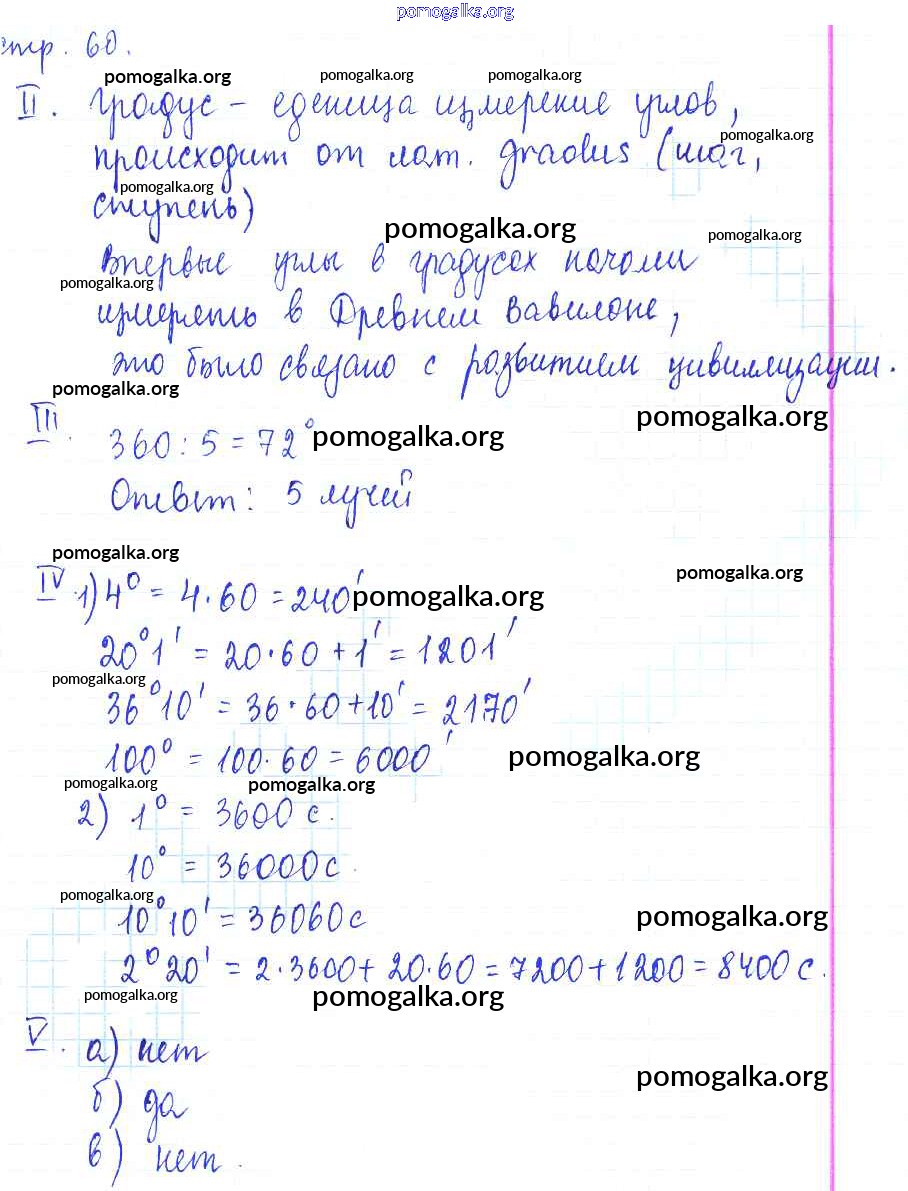 pomogalka.org
стр. 60.
pomogalka.org pomogalka.org pomogalka.org
II. Градус – еденица измерение углов,
pomogalka.org
происходит от лат. gradus (шаг,
pomogalka.org
ступень)
pomogalka.org pomogalka.org
Впервые углы в градусах начали
pomogalka.org
измерять в Древнем Вавилоне,
это было связано с развитием цивилизации.
pomogalka.org
pomogalka.org
III. 360 : 5 = 72° pomogalka.org
Ответ: 5 лучей
pomogalka.org
pomogalka.org
IV 1) 4° = 4·60 = 240′ pomogalka.org
20°1′ = 20·60 + 1′ = 1201′
pomogalka.org
36°10′ = 36·60 + 10′ = 2170′
100° = 100·60 = 6000′ pomogalka.org
pomogalka.org pomogalka.org
2) 1° = 3600 с.
10° = 36000 с.
pomogalka.org
10°10′ = 36060 с pomogalka.org
2°20′ = 2·3600 + 20·60 = 7200 + 1200 = 8400 с.
pomogalka.org pomogalka.org
V. а) нет
pomogalka.org
б) да
в) нет.